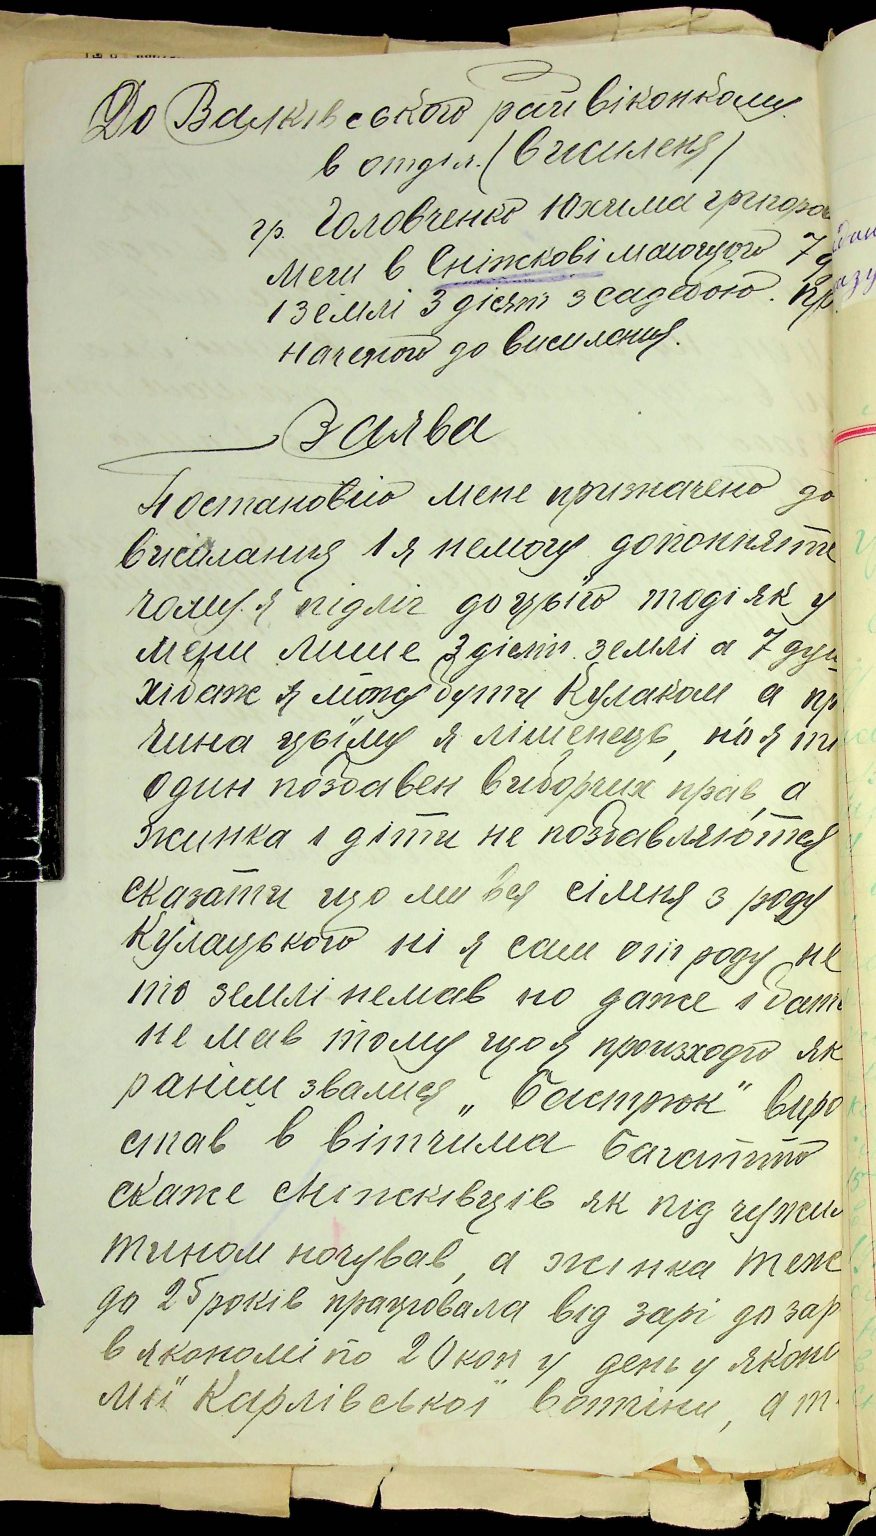 До Валківського райвіконкому
в отділ. (висиленя)
гр. Головченко Юхима григоро
мечи в Сніжкові маючого 7 д
і землі 3 дісят з садебою. пр
наченого до висилания.
Заява
Постановию мене призначено до
висилания і я немогу допоиняти
чому я підліг доцьго тоді як у
мени лише 3 дісят. землі а 7 душ
хібаж я можу бути Кулаком а пр
чина цьіму я лішенець, но я ти
один поздавен виборчих прав, а
жинка і діти не поздавляются
сказати що ми вся сімня з роду
Кулацького ні я сам отроду не
то землі немав но даже і бать
не мав тому що я происходю як
раніш звалися „Бастрюк" виро
став в вітчима багатто
скаже Сніжківців як під чужим
тином ночував, а жінка теж
до 25 років працювала від зарі до зар
в якономі по 20 коп у день у якono
мії Карлівської вотчіни, а т